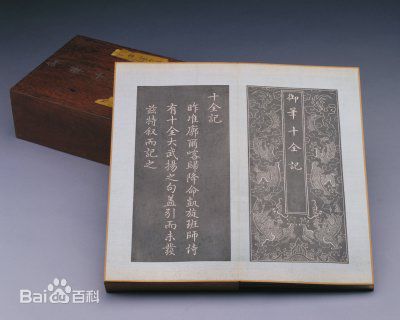 御筆十全記
十全記
昨准廓爾喀歸降命凱旋班師詩
有十全大武揚之句蓋引而未發
茲特叙而記之
Bai百科